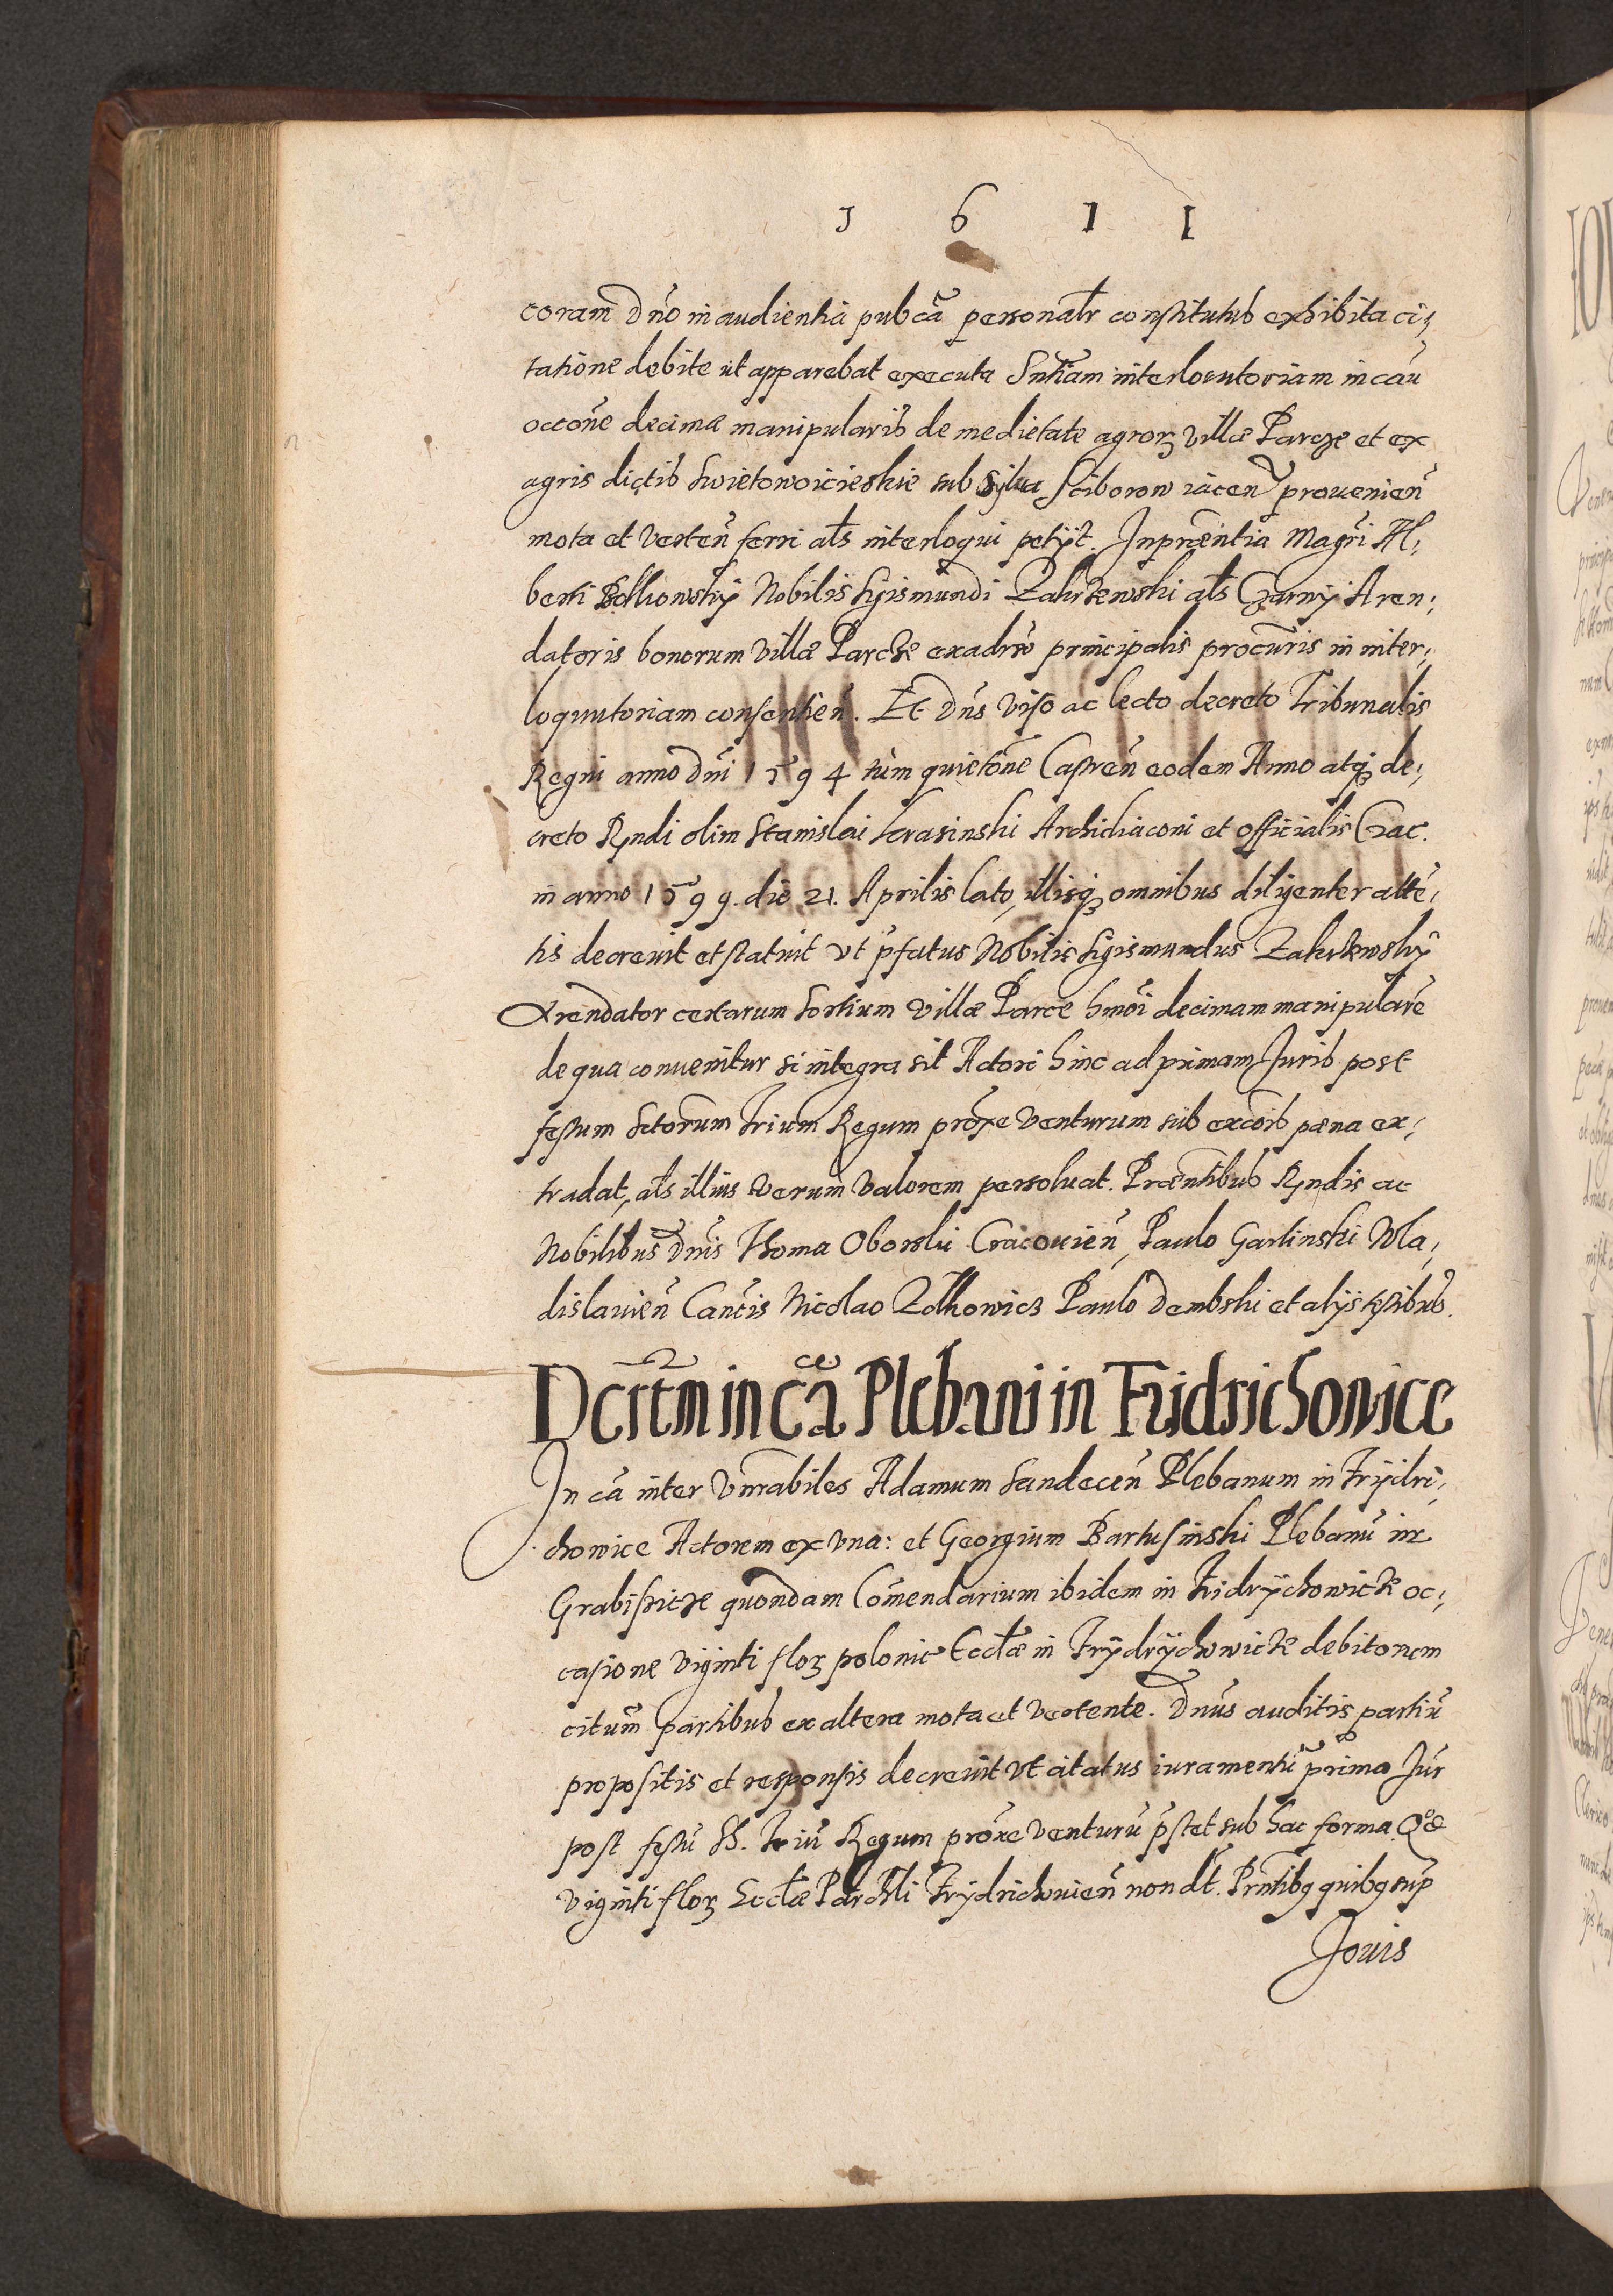 1 6 1 1
coram Dno in audientia pubca personalr constitutus exhibita ci,
tatione debite ut apparebat executa Sntiam interlocutoriam in cau
occone decimæ manipularis de medietate agror villæ Parcze et ex
agris dictis Swietowoicieskie sub Sylva Sciborow iacen provenien
mota et verten ferri als interloqui petijt. In prntia Magri Al,
berti Nobilis Sigismundi Zakrzewski als Czarny Aren,
datoris bonorum villæ Parcze ex adrso principalis procuris in inter,
loquutoriam consentien. Et Dns viso ac lecto decreto Tribunalis
Regni anno Dni 1594 tum quietone Castren eodem Anno atq de,
creto Rndi olim Stanislai Krasinski Archidiaconi et officialis Crac.
in anno 1599. die 21. Aprilis lato, illisq omnibus diligenter atte,
tis decrevit et statuit vt pfatus Nobilis Sigismundus Zakrzewsky
Arendator certarum sortium villæ Parce hmoi decimam manipulare
de qua convenitur si integra sit Actori hinc ad primam Juris post
festum Sctorum Trium Regum proxe venturum sub excois pæna ex,
tradat, als illius verum valorem persolvat. Præntibus Rndis ac
Nobilibus Dnis Thoma Oborski Cracovien, Paulo Garlinski Wla,
dislavien Cancis Nicolao Zolkowicz Paulo Dembski et alijs testibus.
Dcrtm in cã Plebani in Fridrichowice
In cã inter Vnrabiles Adamum Sandecen Plebanum in Frydri,
chowice Actorem ex vna: et Georgium Bartusinski Plebanu in
Grabiszicze quondam Comendarium ibidem in Fridrychowicze oc,
casione viginti flor polonic Ecclæ in Frydrychowicze debitorem
citum partibus ex altera mota et vertente. Dnus auditis partiu
propositis et responsis decrevit vt citatus iuramentu prima Jur
post festu SS. Triu Regum proxe venturu pstet sub hac forma. Qd
viginti flor Ecclæ Parchli Frydrichovien non dt. Prntibq quibq sup
Jovis